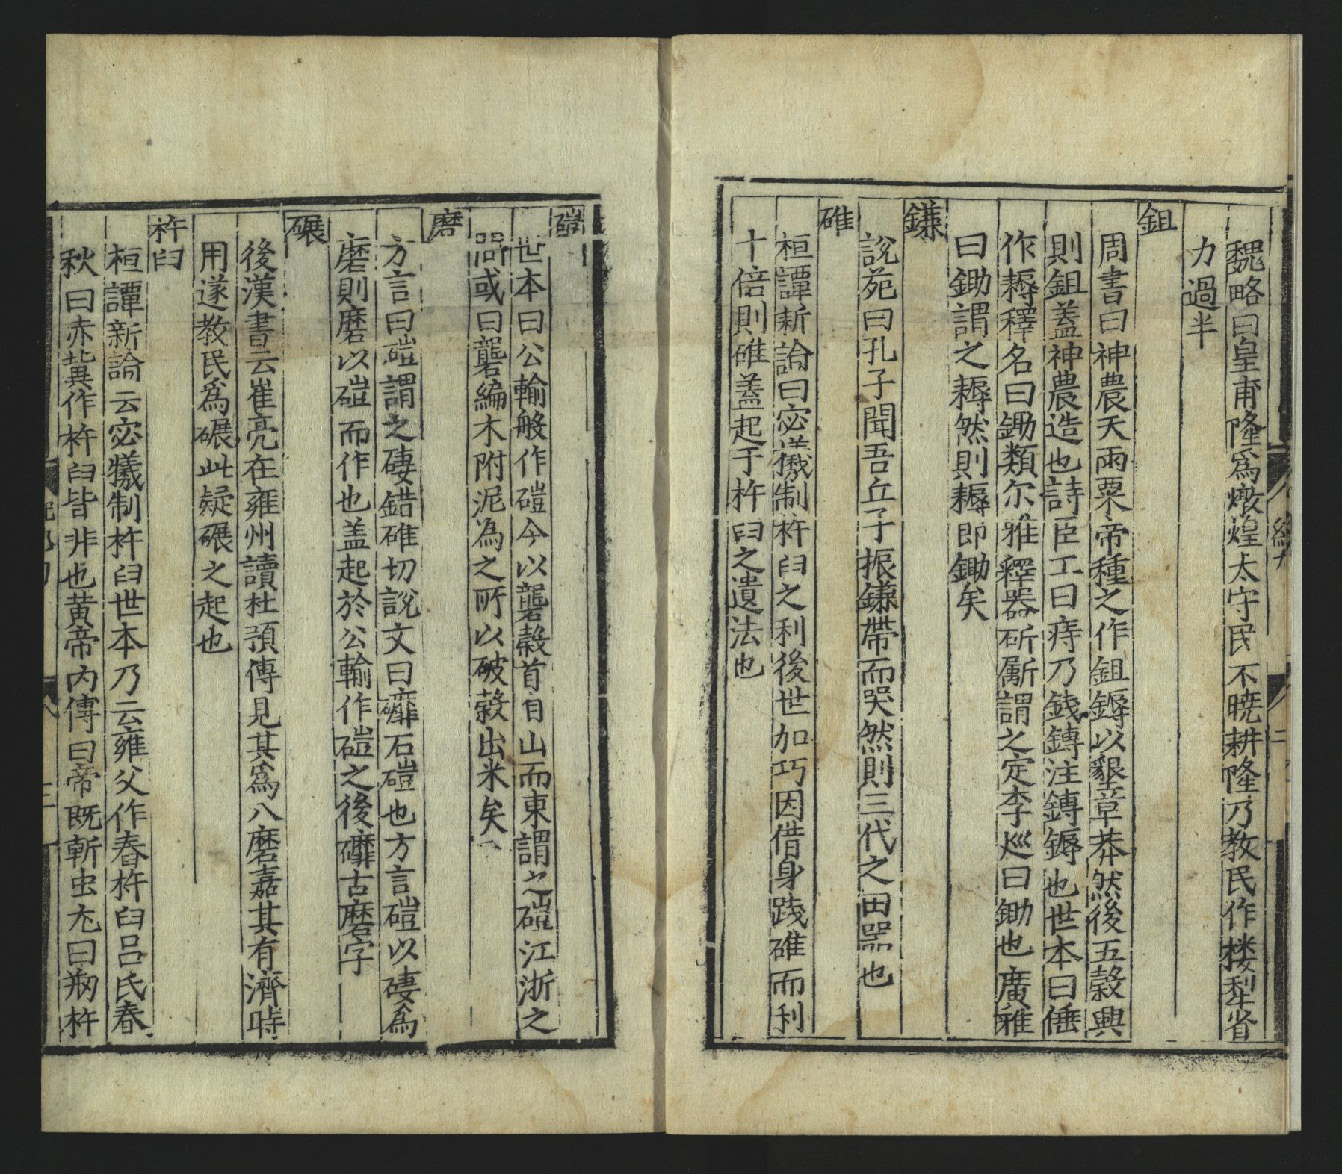 魏略曰皇甫隆爲燉煌太守民不曉耕隆乃教民作楼犁省
力過半
鉏
周書曰神農天雨粟帝種之作鉏鎒以墾草莽然後五穀興
則鉏蓋神農造也詩臣工曰庤乃錢鏄注鏄鎒也世本曰倕
作耨釋名曰鋤類尔雅釋器斫斸謂之定李廵曰鋤也廣雅
曰鋤謂之耨然則耨即鋤矣
鎌
說苑曰孔子聞吾丘子振鎌帶而哭然則三代之田噐也
碓
桓譚新論曰宓㸌制杵臼之利後世加巧因借身踐碓而利
十倍則碓蓋起于杵臼之遺法也
磑
世本曰公輸般作磑今以礱穀首自山而東謂之磑江浙之
間或曰礱編木附泥為之所以破穀出米矣
磨
方言曰磑謂之磫錯碓切說文曰䃺石磑也方言磑以磫為
磨則磨以磑而作也盖起於公輸作磑之後䃺古磨字
碾
後漢書云崔亮在雍州讀杜預傳見其爲八磨嘉其有濟時
用遂教民爲碾此疑碾之起也
杵臼
桓譚新論云宓犧制杵臼世本乃云雍父作舂杵臼吕氏春
秋曰赤冀作杵臼皆非也黄帝内傳曰帝既斬虫尤曰剏杵